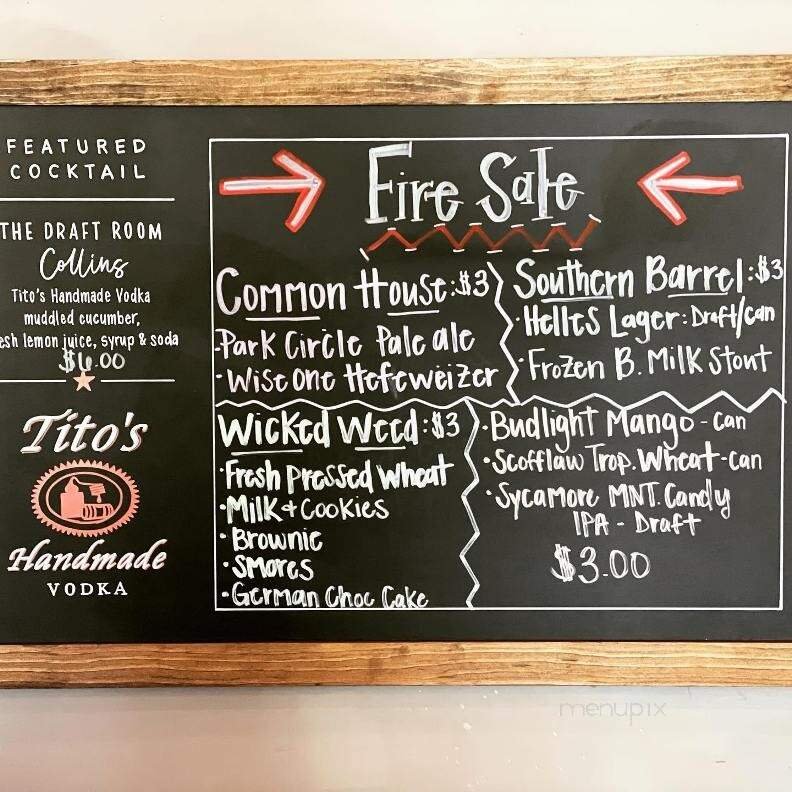 FEATURED
COCKTAIL
THE DRAFT ROOM
Collins
Tito's Handmade Vodka
muddled cucumber,
esh lemon juice, syrup & soda
$6.00
Tito's
Handmade
VODKA
Fire Sale
Common House: $3
·Park Circle Pale ale
·Wise One Hefeweizer
Southern Barrel: $3
·Helles Lager: Draft/can
·Frozen B. Milk Stout
Wicked Weed: $3
·Fresh Pressed Wheat
·Milk + Cookies
·Brownie
·Smores
·German Choc Cake
·Budlight Mango - can
·Scofflaw Trop. Wheat - can
·Sycamore MNT. Candy
IPA - Draft
$3.00
menupix